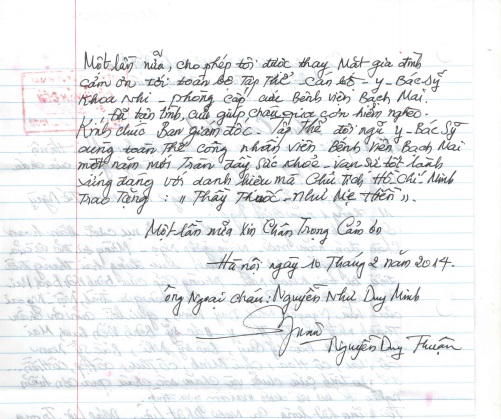 Một lần nữa, cho phép tôi được thay Mặt gia đình
cảm ơn tới toàn bộ Tập Thể - Cán bộ - y - Bác Sỹ
Khoa Nhi - phòng cấp cứu Bệnh viện Bạch Mai.
đã tận tình, cứu giúp cháu qua cơn hiểm nghèo.
Kính chúc Ban giám đốc - Tập Thể đội ngũ y - Bác Sỹ
cùng toàn Thể công nhân viên Bệnh viện Bạch Mai
một năm mới Tràn đầy sức khỏe - Vạn sự tốt lành
xứng đáng với danh hiệu mà Chủ Tịch Hồ Chí Minh
Trao Tặng : " Thầy Thuốc - Như Mẹ Hiền ".
Một lần nữa Xin Chân Trọng Cảm ơn
Hà nội ngày 10 Tháng 2 năm 2014.
ông Ngoại cháu: Nguyễn Như Duy Minh
Nguyễn Duy Thuận